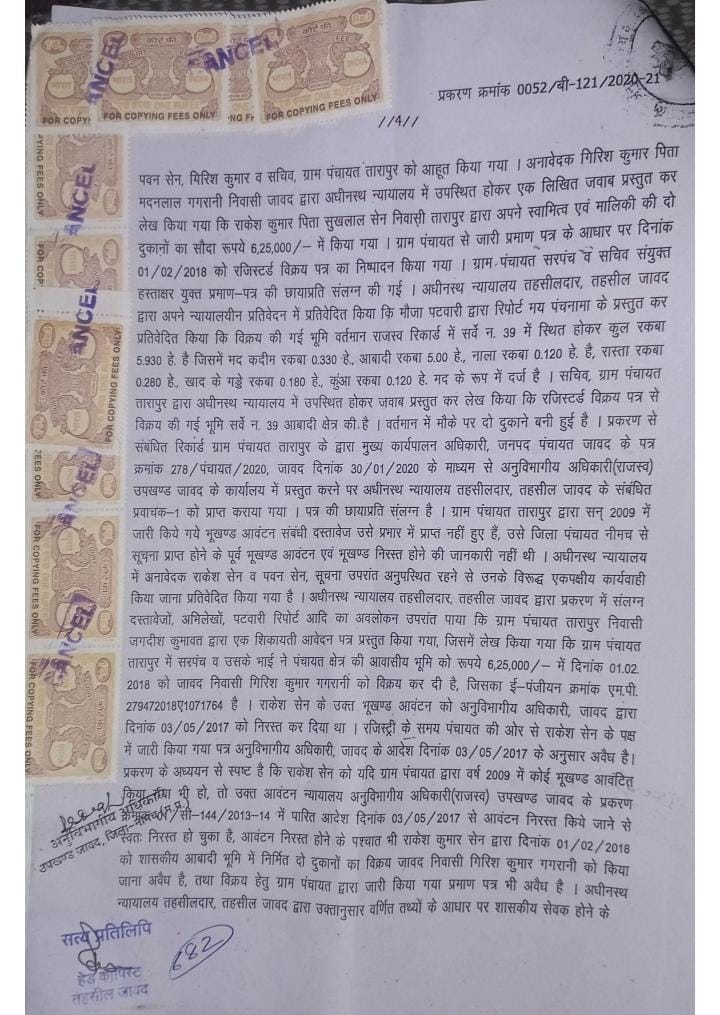 प्रकरण क्रमांक 0052/बी-121/2020-21
//4//
पवन सेन, गिरिश कुमार व सचिव, ग्राम पंचायत तारापुर को आहूत किया गया । अनावेदक गिरिश कुमार पिता
मदनलाल गगरानी निवासी जावद द्वारा अधीनस्थ न्यायालय में उपस्थित होकर एक लिखित जवाब प्रस्तुत कर
लेख किया गया कि राकेश कुमार पिता सुखलाल सेन निवासी तारापुर द्वारा अपने स्वामित्व एवं मालिकी की दो
दुकानों का सौदा रूपये 6,25,000/– में किया गया । ग्राम पंचायत से जारी प्रमाण पत्र के आधार पर दिनांक
01/02/2018 को रजिस्टर्ड विक्रय पत्र का निष्पादन किया गया । ग्राम पंचायत सरपंच व सचिव संयुक्त
हस्ताक्षर युक्त प्रमाण–पत्र की छायाप्रति संलग्न की गई । अधीनस्थ न्यायालय तहसीलदार, तहसील जावद
द्वारा अपने न्यायालयीन प्रतिवेदन में प्रतिवेदित किया कि मौजा पटवारी द्वारा रिपोर्ट मय पंचनामा के प्रस्तुत कर
प्रतिवेदित किया कि विक्रय की गई भूमि वर्तमान राजस्व रिकार्ड में सर्वे न. 39 में स्थित होकर कुल रकबा
5.930 हे. है जिसमें मद कदीम रकबा 0.330 हे., आबादी रकबा 5.00 हे., नाला रकबा 0.120 हे. है, रास्ता रकबा
0.280 हे., खाद के गड्डे रकबा 0.180 हे., कुंआ रकबा 0.120 हे. मद के रूप में दर्ज है । सचिव, ग्राम पंचायत
तारापुर द्वारा अधीनस्थ न्यायालय में उपस्थित होकर जवाब प्रस्तुत कर लेख किया कि रजिस्टर्ड विक्रय पत्र से
विक्रय की गई भूमि सर्वे न. 39 आबादी क्षेत्र की है । वर्तमान में मौके पर दो दुकाने बनी हुई है । प्रकरण से
संबंधित रिकार्ड ग्राम पंचायत तारापुर के द्वारा मुख्य कार्यपालन अधिकारी, जनपद पंचायत जावद के पत्र
क्रमांक 278/पंचायत/2020, जावद दिनांक 30/01/2020 के माध्यम से अनुविभागीय अधिकारी(राजस्व)
उपखण्ड जावद के कार्यालय में प्रस्तुत करने पर अधीनस्थ न्यायालय तहसीलदार, तहसील जावद के संबंधित
प्रवाचक–1 को प्राप्त कराया गया । पत्र की छायाप्रति संलग्न है । ग्राम पंचायत तारापुर द्वारा सन् 2009 में
जारी किये गये भूखण्ड आवंटन संबंधी दस्तावेज उसे प्रभार में प्राप्त नहीं हुए हैं, उसे जिला पंचायत नीमच से
सूचना प्राप्त होने के पूर्व भूखण्ड आवंटन एवं भूखण्ड निरस्त होने की जानकारी नहीं थी । अधीनस्थ न्यायालय
में अनावेदक राकेश सेन व पवन सेन, सूचना उपरांत अनुपस्थित रहने से उनके विरूद्ध एकपक्षीय कार्यवाही
किया जाना प्रतिवेदित किया गया है । अधीनस्थ न्यायालय तहसीलदार, तहसील जावद द्वारा प्रकरण में संलग्न
दस्तावेजों, अभिलेखों, पटवारी रिपोर्ट आदि का अवलोकन उपरांत पाया कि ग्राम पंचायत तारापुर निवासी
जगदीश कुमावत द्वारा एक शिकायती आवेदन पत्र प्रस्तुत किया गया, जिसमें लेख किया गया कि ग्राम पंचायत
तारापुर में सरपंच व उसके भाई ने पंचायत क्षेत्र की आवासीय भूमि को रूपये 6,25,000/– में दिनांक 01.02.
2018 को जावद निवासी गिरिश कुमार गगरानी को विक्रय कर दी है, जिसका ई–पंजीयन क्रमांक एम.पी.
279472018ए1071764 है । राकेश सेन के उक्त भूखण्ड आवंटन को अनुविभागीय अधिकारी, जावद द्वारा
दिनांक 03/05/2017 को निरस्त कर दिया था । रजिस्ट्री के समय पंचायत की ओर से राकेश सेन के पक्ष
में जारी किया गया पत्र अनुविभागीय अधिकारी, जावद के आदेश दिनांक 03/05/2017 के अनुसार अवैध है।
प्रकरण के अध्ययन से स्पष्ट है कि राकेश सेन को यदि ग्राम पंचायत द्वारा वर्ष 2009 में कोई भूखण्ड आवंटित
किया गया भी हो, तो उक्त आवंटन न्यायालय अनुविभागीय अधिकारी(राजस्व) उपखण्ड जावद के प्रकरण
क्रमांक 01/सी–144/2013-14 में पारित आदेश दिनांक 03/05/2017 से आवंटन निरस्त किये जाने से
स्वतः निरस्त हो चुका है, आवंटन निरस्त होने के पश्चात भी राकेश कुमार सेन द्वारा दिनांक 01/02/2018
को शासकीय आबादी भूमि में निर्मित दो दुकानों का विक्रय जावद निवासी गिरिश कुमार गगरानी को किया
जाना अवैध है, तथा विक्रय हेतु ग्राम पंचायत द्वारा जारी किया गया प्रमाण पत्र भी अवैध है । अधीनस्थ
न्यायालय तहसीलदार, तहसील जावद द्वारा उक्तानुसार वर्णित तथ्यों के आधार पर शासकीय सेवक होने के
अनुविभागीय अधिकारी
उपखण्ड जावद, जिला-नीमच (म.प्र.)
सत्य प्रतिलिपि
हेड कॉपिस्ट
तहसील जावद
682
कोर्ट फी
COURT FEE
भारत INDIA
एक रूपया ONE RUPEE
FOR COPYING FEES ONLY
ANCEL